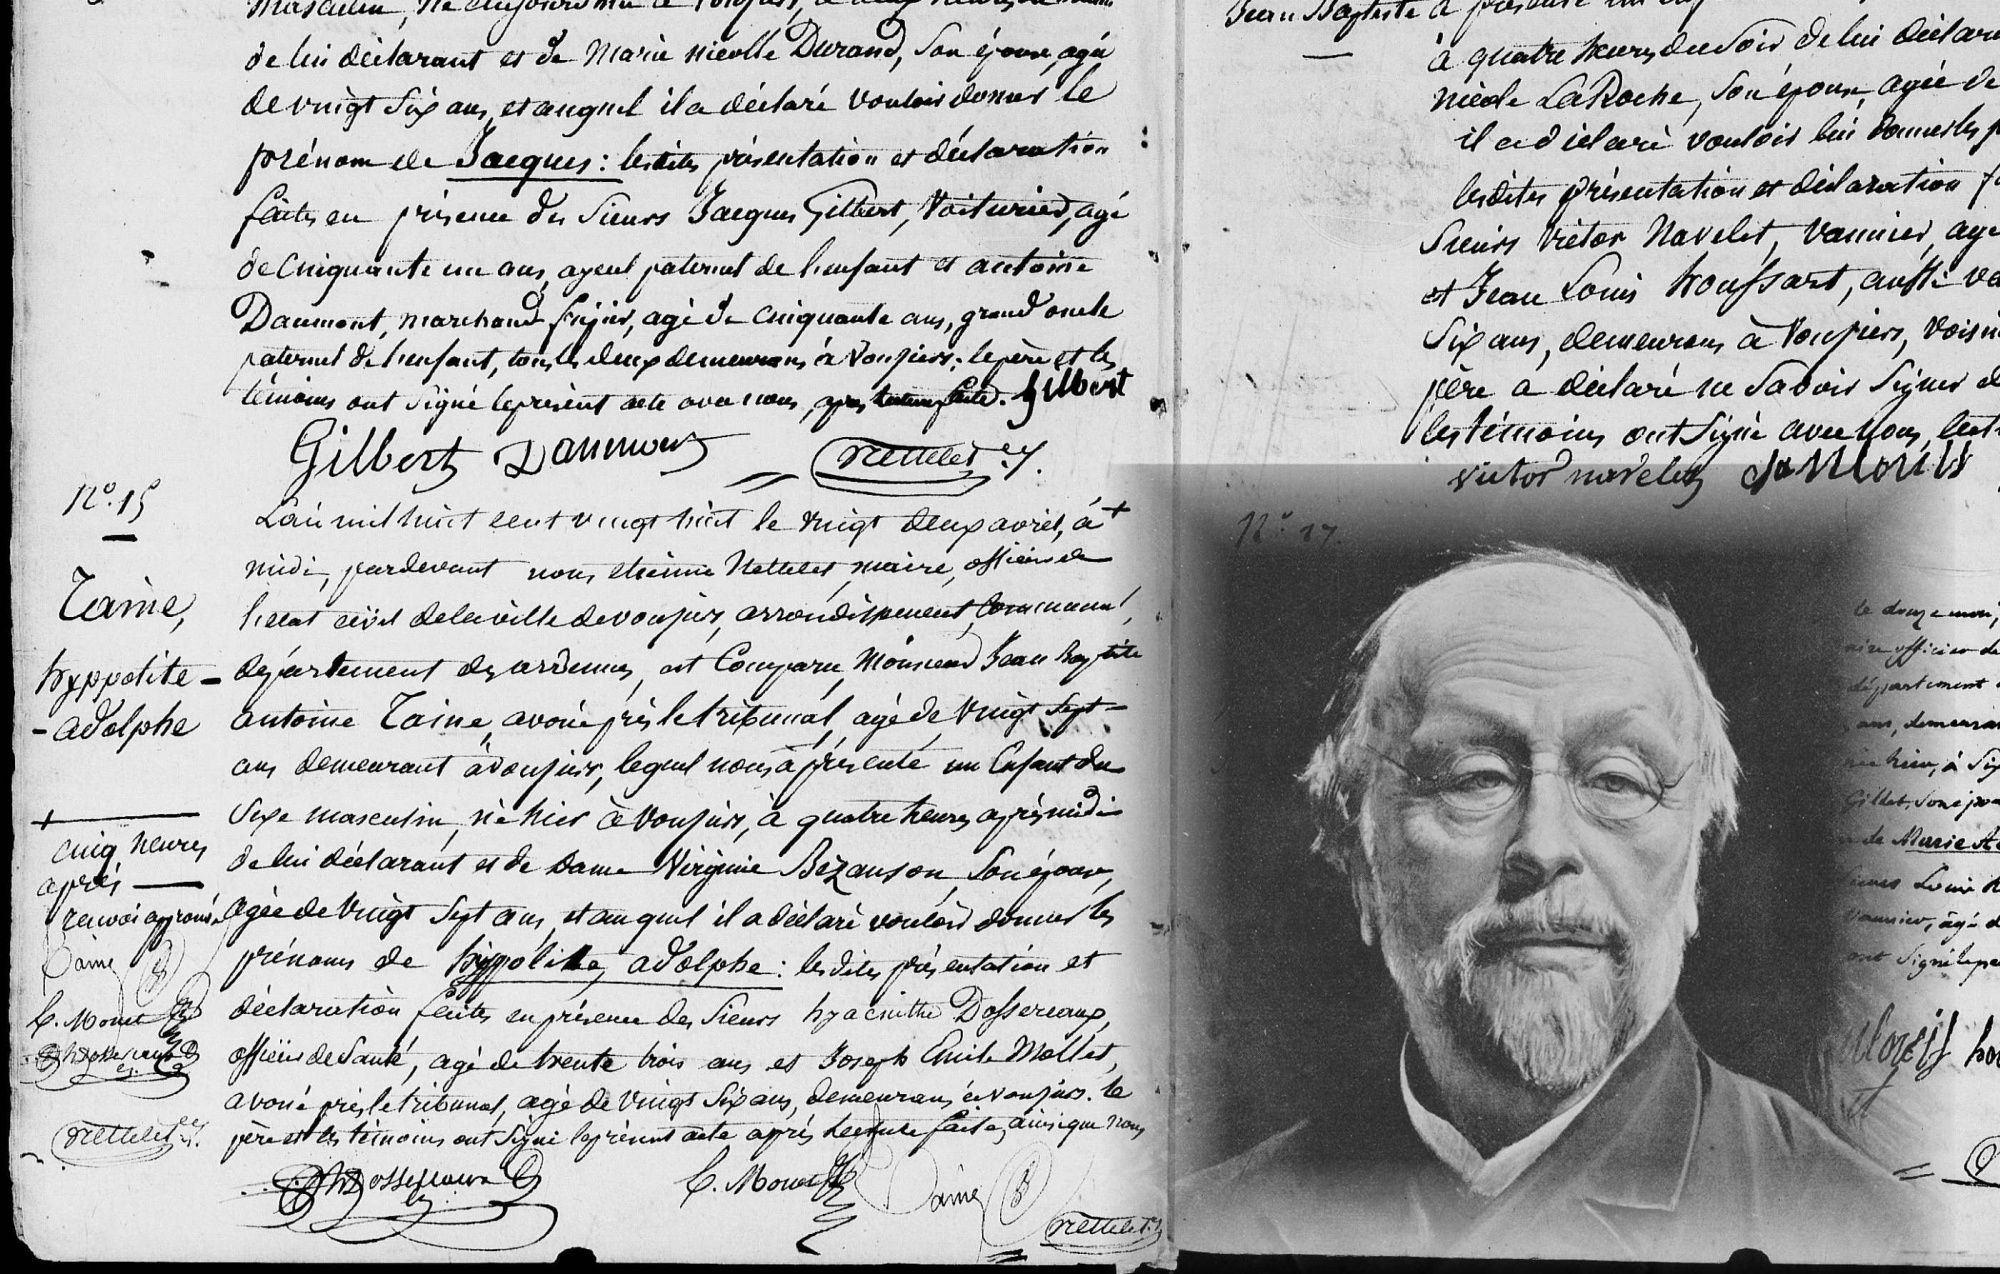 de lui déclarant et de Marie nicolle Durand, son épouse, agée
de vingt six ans, et auquel il a déclaré vouloir donner le
prénom de Jacques : lesdites présentation et déclaration
faites en présence des Sieurs Jacques Gilbert, Voiturier, agé
de cinquante un ans, ayeul paternel de l'enfant et antoine
Daumont, marchand fripier, agé de cinquante ans, grand oncle
paternel de l'enfant, tous les deux demeurans à Vouziers; le père et les
témoins ont signé le présent acte avec nous, après lecture faite. Gilbert
Gilbert Daumont Nettelet
N.º 15
Taine,
hyppolite -
- adolphe
L'an mil huit cent vingt huit le vingt deux avril, à +
midi, pardevant nous etienne Nettelet, maire, officier de
l'état civil de la ville de vouziers, arrondissement, Communal,
département des ardennes, est Comparu Monsieur Jean baptiste
antoine Taine, avoué près le tribunal, agé de vingt sept
ans demeurant à Vouziers, lequel nous a présenté un Enfant du
sexe masculin, né hier à Vouziers, à quatre heures après midi
de lui déclarant et de Dame Virginie Bezanson, son épouse,
agée de vingt sept ans, et auquel il a déclaré vouloir donner les
prénoms de hyppolite, adolphe : lesdites présentation et
déclaration faites en présence des Sieurs hyacinthe Dossereaux,
officier de Santé, agé de trente trois ans et Joseph Emile Mollet,
avoué près le tribunal, agé de vingt six ans, demeurans à vouziers. le
père et les témoins ont signé le présent acte après lecture faite, ainsi que nous
+ cinq heures
après
renvoi approuvé
Taine
Nettelet
Taine
Nettelet
Jean Baptiste
à quatre heures du soir de lui déclar
nicole LaRoche, son épouse, agée de
il a déclaré vouloir lui donner les p
lesdites présentation et déclaration f
Sieurs Victor Navelet, vannier, agé
et Jean Louis houssart, aussi va
six ans, demeurans à Vouziers, voisi
père a déclaré ne savoir signer
les témoins ont signé avec nous, lect
victor navelet
N.º 17.
le douze mai,
aire officier de
département
ans, demeuran
hier, à six
Gillet, son épou
de Marie
Louis
vannier, âgé d
ont signé le pr